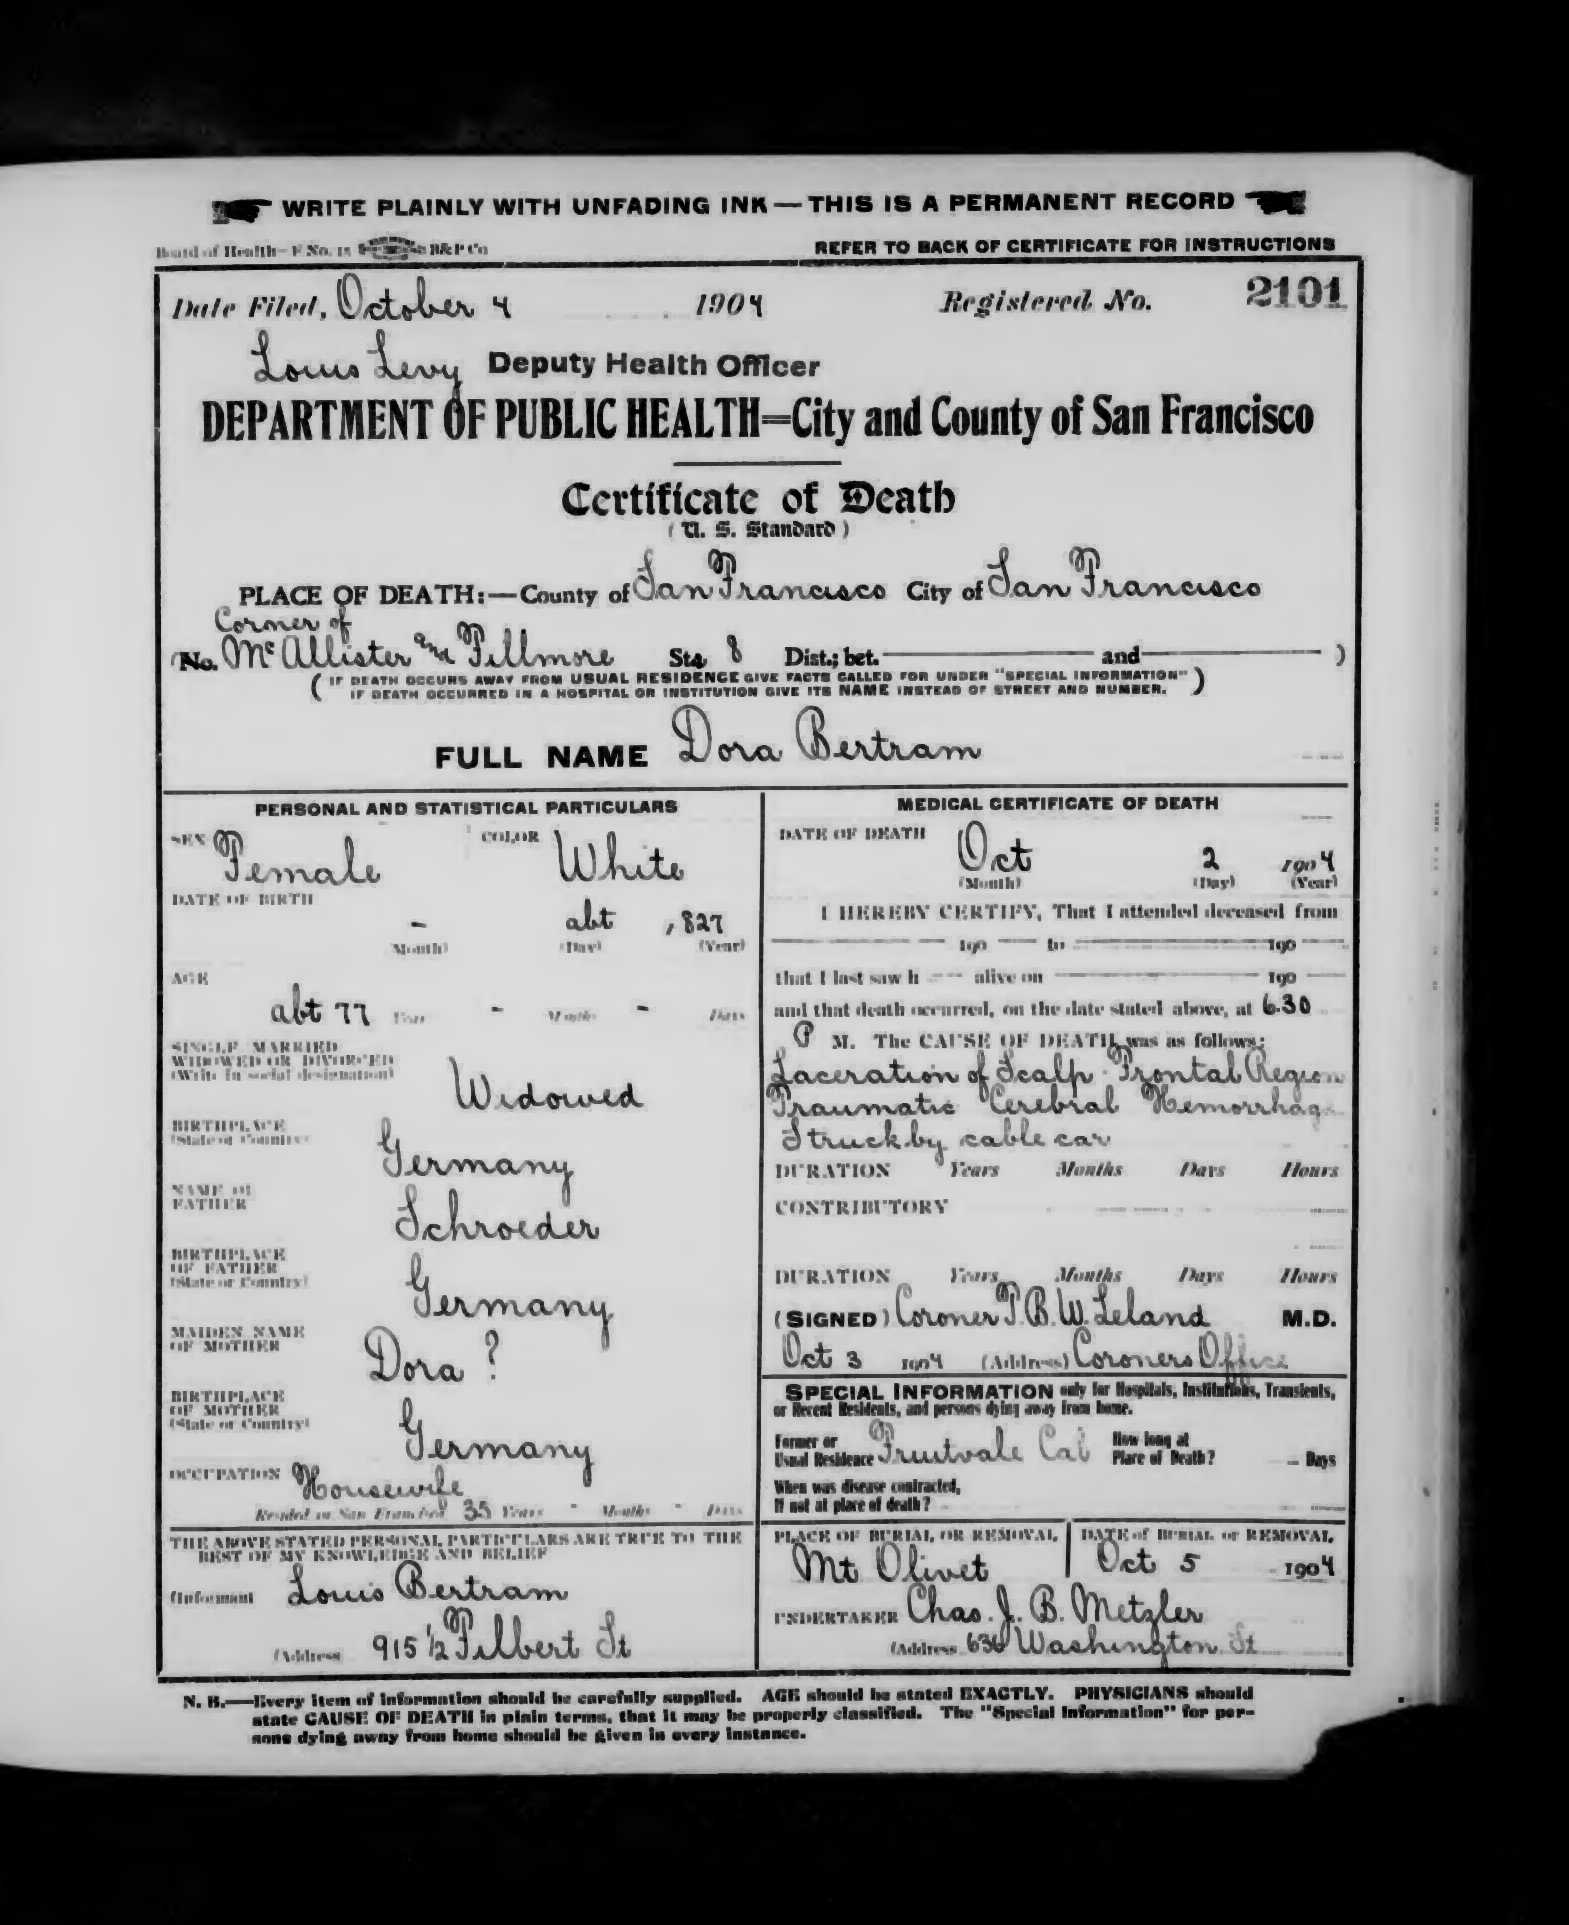 WRITE PLAINLY WITH UNFADING INK — THIS IS A PERMANENT RECORD
Board of Health—F No. 15 B&P Co
REFER TO BACK OF CERTIFICATE FOR INSTRUCTIONS
Date Filed, October 4 1904 Registered No. 2101
Louis Levy Deputy Health Officer
DEPARTMENT OF PUBLIC HEALTH=City and County of San Francisco
Certificate of Death
(U. S. Standard)
PLACE OF DEATH:—County of San Francisco City of San Francisco
Corner of
No. McAllister and Fillmore Sts 8 Dist.; bet. and )
( IF DEATH OCCURS AWAY FROM USUAL RESIDENCE GIVE FACTS CALLED FOR UNDER "SPECIAL INFORMATION" )
IF DEATH OCCURRED IN A HOSPITAL OR INSTITUTION GIVE ITS NAME INSTEAD OF STREET AND NUMBER.
FULL NAME Dora Bertram
PERSONAL AND STATISTICAL PARTICULARS
SEX Female COLOR White
DATE OF BIRTH
- abt , 827
(Month) (Day) (Year)
AGE
abt 77 Years - Months - Days
SINGLE, MARRIED
WIDOWED OR DIVORCED
(Write in social designation)
Widowed
BIRTHPLACE
(State or Country)
Germany
NAME OF
FATHER
Schroeder
BIRTHPLACE
OF FATHER
(State or Country)
Germany
MAIDEN NAME
OF MOTHER
Dora ?
BIRTHPLACE
OF MOTHER
(State or Country)
Germany
OCCUPATION Housewife
Resided in San Francisco 35 Years - Months - Days
THE ABOVE STATED PERSONAL PARTICULARS ARE TRUE TO THE
BEST OF MY KNOWLEDGE AND BELIEF
(Informant Louis Bertram
(Address 915 1/2 Filbert St
MEDICAL CERTIFICATE OF DEATH
DATE OF DEATH
Oct 2 1904
(Month) (Day) (Year)
I HEREBY CERTIFY, That I attended deceased from
190 to 190
that I last saw h alive on 190
and that death occurred, on the date stated above, at 6.30
P M. The CAUSE OF DEATH was as follows:
Laceration of Scalp - Frontal Region
Traumatic Cerebral Hemorrhage
Struck by cable car
DURATION Years Months Days Hours
CONTRIBUTORY
DURATION Years Months Days Hours
(SIGNED) Coroner T. B. W. Leland M.D.
Oct 3 1904 (Address) Coroners Office
SPECIAL INFORMATION only for Hospitals, Institutions, Transients,
or Recent Residents, and persons dying away from home.
Former or
Usual Residence Fruitvale Cal
How long at
Place of Death? - Days
When was disease contracted,
If not at place of death?
PLACE OF BURIAL OR REMOVAL
Mt Olivet
DATE of BURIAL or REMOVAL
Oct 5 1904
UNDERTAKER Chas. J. B. Metzler
(Address 636 Washington St
N. B.—Every item of information should be carefully supplied. AGE should be stated EXACTLY. PHYSICIANS should
state CAUSE OF DEATH in plain terms, that it may be properly classified. The "Special Information" for per-
sons dying away from home should be given in every instance.